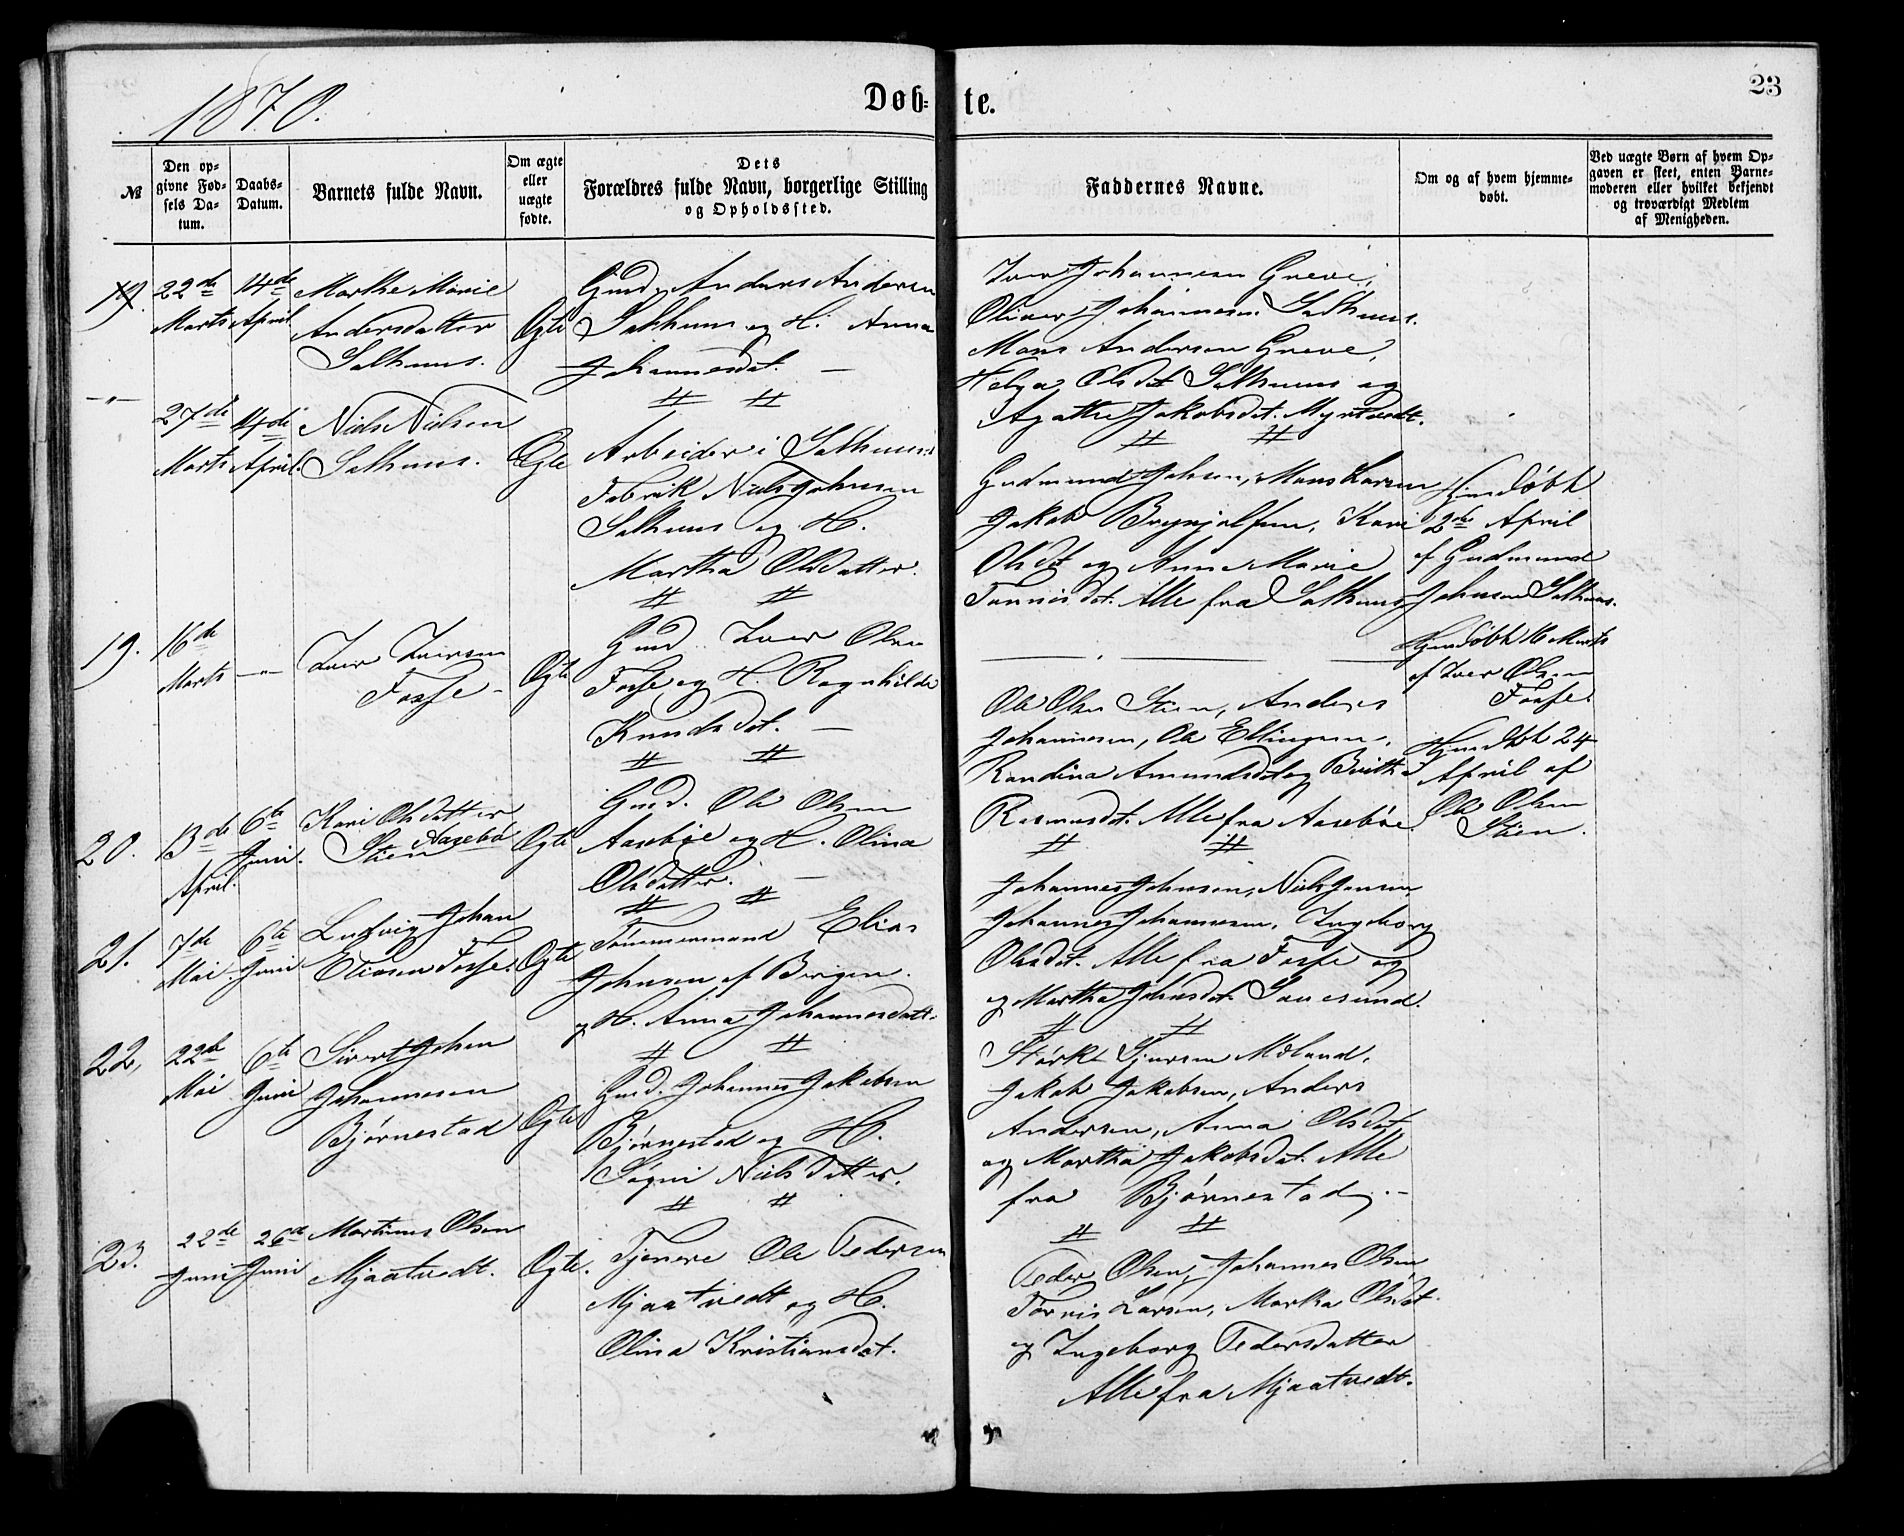 1870.
Døb-te.
23
№
Den opgivne Fødsels Datum.
Daabs-Datum.
Barnets fulde Navn.
Om ægte eller uægte fødte.
Dets Forældres fulde Navn, borgerlige Stilling og Opholdssted.
Faddernes Navne.
Om og af hvem hjemmedøbt.
Ved uægte Børn af hvem Opgaven er skeet, enten Barnemoderen eller hvilket bekjendt og troværdigt Medlem af Menigheden.
19.
22de
Marts
14de
April
Marthe Marie
Andersdatter
Salhuus.
Ægte
Gmd. Anders Andersen
Salhuus og H. Anna
Johannesdat. —
Iver Johannesen Greve,
Oliver Johannesen Salhuus.
Mons Andersen Greve,
Helga Olsdat Salhuus og
Agathe Jakobsdat. Myrtvedt.
— " —
27de
Marts
14de
April.
Niels Nielsen
Salhuus.
Ægte
Arbeider i Salhuus
Fabrik Niels Johnsen
Salhuus og H.
Martha Olsdatter.
Gudmund Johnsen, Mons Larsen
Jakob Brynjolfsen, Kari
Olsdat og Anne Marie
Tønnisdat. Alle fra Salhuus
Hjemdøbt
2de April
af Gudmund
Johnsen Salhuus.
19.
16de
Marts
— " —
Iver Iversen
Fosse
Ægte
Gmd. Iver Olsen
Fosse og H. Ragnhilde
Knudsdat. —
Hjemdøbt 16 Marts
af Iver Olsen
Fosse.
20.
13de
April.
6te
Juni.
Kari Olsdatter
Stien Aasebø
Ægte
Gmd. Ole Olsen
Aasebøe og H. Olina
Olsdatter. —
Ole Olsen Stien, Anders
Johannesen, Ole Ellingsen,
Randina Amundsdat og Britha
Rasmusdat. Alle fra Aasebøe
Hjemdøbt 24
April af
Ole Olsen
Stien.
21.
7de
Mai.
6te
Juni
Ludvig Johan
Eliasen Fosse.
Ægte
Tømmermand Elias
Johnsen af Bergen.
og H. Anna Johannesdatt.
Johannes Johnsen, Niels Jensen
Johannes Johannesen, Ingeborg
Olsdat. Alle fra Fosse og
og Martha Johnsdat.
22,
22de
Mai
6te
Juni
Sivert Johan
Johannesen
Bjørnestad
Ægte
Gmd. Johannes Jakobsen
Bjørnestad og H.
Søgni Nielsdatter.
Størke Sjursen Mæland.
Jakob Jakobsen, Anders
Andersen, Anna Olsdat,
og Martha Jakobsdat. Alle
fra Bjørnestad. —
23.
22de
Juni
26de
Juni
Martinus Olsen
Mjaatvedt.
Ægte.
Tjenere Ole Pedersen
Mjaatvedt og H.
Olina Kristiansdat.
Peder Olsen, Johannes Olsen
Larsen, Marka Olsdat.
og Ingeborg Pedersdatter
Alle fra Mjaatvedt.